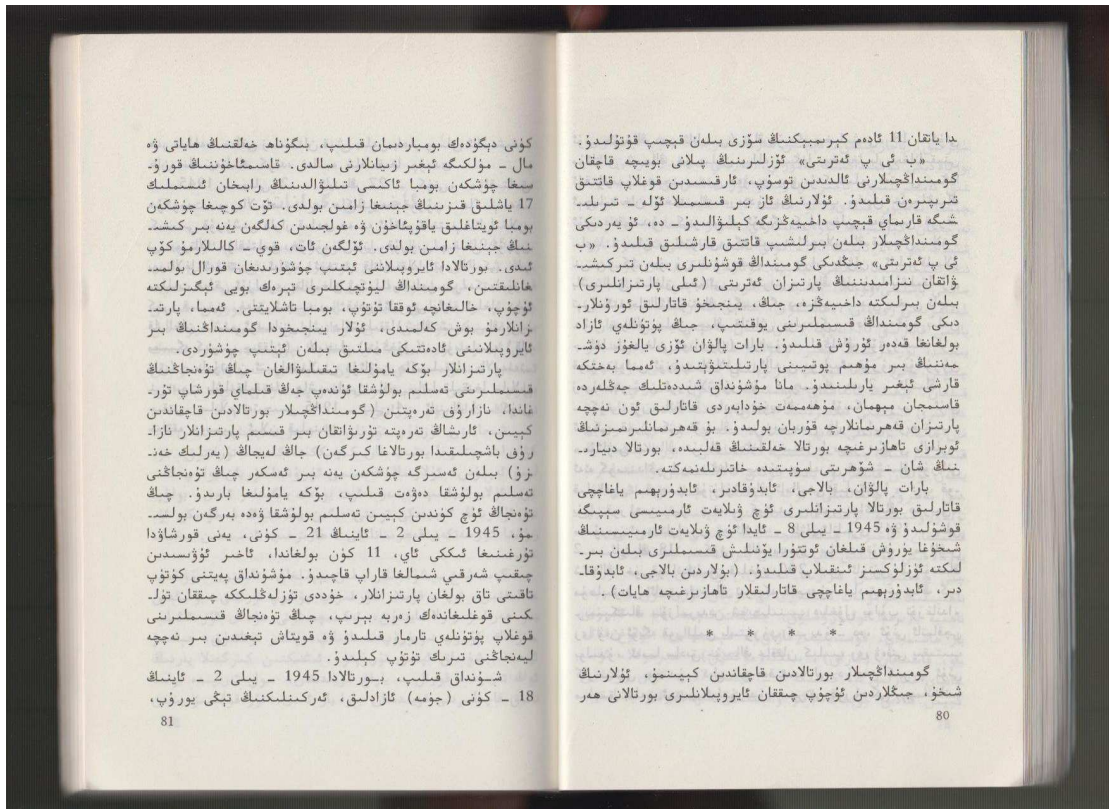 دا ياتقان 11 ئادەم كېرىمبېكنىڭ سۆزى بىلەن قېچىپ قۇتۇلىدۇ.
«ب ئى پ ئەترىتى» ئۆزلىرىنىڭ پىلانى بويىچە قاچقان
گومىنداڭچىلارنى ئالدىدىن توسۇپ، ئارقىسىدىن قوغلاپ قاتتىق
تىرىپىرەن قىلىدۇ. ئۇلارنىڭ ئاز بىر قىسمىلا ئۆلە ـ تىرىلىـ
شىگە قارىماي قېچىپ داخىيەڭزىگە كېلىۋالىدۇ ـ دە، ئۇ يەردىكى
گومىنداڭچىلار بىلەن بىرلىشىپ قاتتىق قارشىلىق قىلىدۇ. «ب
ئى پ ئەترىتى» جىڭدىكى گومىنداڭ قوشۇنلىرى بىلەن تىركىشىـ
ۋاتقان نىزامىدىننىڭ پارتىزان ئەترىتى (ئىلى پارتىزانلىرى)
بىلەن بىرلىكتە داخىيەڭزە، جىڭ، يىنجىخۇ قاتارلىق ئورۇنلارـ
دىكى گومىنداڭ قىسىملىرىنى يوقىتىپ، جىڭ پۈتۈنلەي ئازاد
بولغانغا قەدەر ئۇرۇش قىلىدۇ. بارات پالۋان ئۆزى يالغۇز دۈشـ
مەننىڭ بىر مۇھىم پوتىيىنى پارتىلىتىۋېتىدۇ، ئەمما بەختكە
قارشى ئېغىر يارىلىنىدۇ. مانا مۇشۇنداق شىددەتلىك جەڭلەردە
قاسىمجان مېھمان، مۇھەممەت خۇدابەردى قاتارلىق ئون نەچچە
پارتىزان قەھرىمانلارچە قۇربان بولىدۇ. بۇ قەھرىمانلىرىمىزنىڭ
ئوبرازى تاھازىرغىچە بورتالا خەلقىنىڭ قەلبىدە، بورتالا دىيارىـ
نىڭ شان ـ شۆھرىتى سۈپىتىدە خاتىرىلەنمەكتە.
بارات پالۋان، بالاجى، ئابدۇقادىر، ئابدۇرېھىم ياغاچچى
قاتارلىق بورتالا پارتىزانلىرى ئۈچ ۋىلايەت ئارمىيىسى سېپىگە
قوشۇلىدۇ ۋە 1945 ـ يىلى 8 ـ ئايدا ئۈچ ۋىلايەت ئارمىيىسىنىڭ
شىخۇغا يۈرۈش قىلغان ئوتتۇرا يۆنىلىش قىسىملىرى بىلەن بىرـ
لىكتە ئۈزلۈكسىز ئىنقىلاب قىلىدۇ. (بۇلاردىن بالاجى، ئابدۇقاـ
دىر، ئابدۇرېھىم ياغاچچى قاتارلىقلار تاھازىرغىچە ھايات).
* * * *
گومىنداڭچىلار بورتالادىن قاچقاندىن كېيىنمۇ، ئۇلارنىڭ
شىخۇ، جىڭلاردىن ئۇچۇپ چىققان ئايروپىلانلىرى بورتالانى ھەر
80
كۈنى دېگۈدەك بومباردىمان قىلىپ، بىگۇناھ خەلقنىڭ ھاياتى ۋە
مال ـ مۈلكىگە ئېغىر زىيانلارنى سالدى. قاسىمئاخۇننىڭ قورۇـ
سىغا چۈشكەن بومبا ئاكىسى تىلىۋالدىنىڭ رابىخان ئىسىملىك
17 ياشلىق قىزىنىڭ جېنىغا زامىن بولدى. تۆت كوچىغا چۈشكەن
بومبا ئويتاغلىق ياقۇپئاخۇن ۋە غولجىدىن كەلگەن يەنە بىر كىشىـ
نىڭ جېنىغا زامىن بولدى. ئۆلگەن ئات، قوي ـ كالىلارمۇ كۆپ
ئىدى. بورتالادا ئايروپىلاننى ئېتىپ چۈشۈرىدىغان قورال بولمىـ
غانلىقتىن، گومىنداڭ ليوتچىكلىرى تېرەك بويى ئېگىزلىكتە
ئۇچۇپ، خالىغانچە ئوققا تۇتۇپ، بومبا تاشلايتتى. ئەمما، پارتىـ
زانلارمۇ بوش كەلمىدى، ئۇلار يىنجىخودا گومىنداڭنىڭ بىر
ئايروپىلانىنى ئادەتتىكى مىلتىق بىلەن ئېتىپ چۈشۈردى.
پارتىزانلار بۆكە يامۇلىغا تىقىلىۋالغان چىڭ تۇەنجاڭنىڭ
قىسىملىرىنى تەسلىم بولۇشقا ئۈندەپ جەڭ قىلماي قورشاپ تۇرـ
غاندا، نازارۇف تەرەپتىن (گومىنداڭچىلار بورتالادىن قاچقاندىن
كېيىن، ئارىشاڭ تەرەپتە تۇرىۋاتقان بىر قىسىم پارتىزانلار نازاـ
رۇف باشچىلىقىدا بورتالاغا كىرگەن) جاڭ لەيجاڭ (يەرلىك خەنـ
زۇ) بىلەن ئەسىرگە چۈشكەن يەنە بىر ئەسكەر چىڭ تۇەنجاڭنى
تەسلىم بولۇشقا دەۋەت قىلىپ، بۆكە يامۇلىغا بارىدۇ. چىڭ
تۇەنجاڭ ئۈچ كۈندىن كېيىن تەسلىم بولۇشقا ۋەدە بەرگەن بولسىـ
مۇ، 1945 ـ يىلى 2 ـ ئاينىڭ 21 ـ كۈنى، يەنى قورشاۋدا
تۇرغىنىغا ئىككى ئاي، 11 كۈن بولغاندا، ئاخىر ئۇۋىسىدىن
چىقىپ شەرقىي شىمالغا قاراپ قاچىدۇ. مۇشۇنداق پەيتنى كۈتۈپ
تاقىتى تاق بولغان پارتىزانلار، خۇددى تۈزلەڭلىككە چىققان تۈلـ
كىنى قوغلىغاندەك زەربە بېرىپ، چىڭ تۇەنجاڭ قىسىملىرىنى
قوغلاپ پۈتۈنلەي تارمار قىلىدۇ ۋە قويتاش تېغىدىن بىر نەچچە
ليەنجاڭنى تىرىك تۇتۇپ كېلىدۇ.
شۇنداق قىلىپ، بورتالادا 1945 ـ يىلى 2 ـ ئاينىڭ
18 ـ كۈنى (جۈمە) ئازادلىق، ئەركىنلىكنىڭ تېڭى يورۇپ،
81